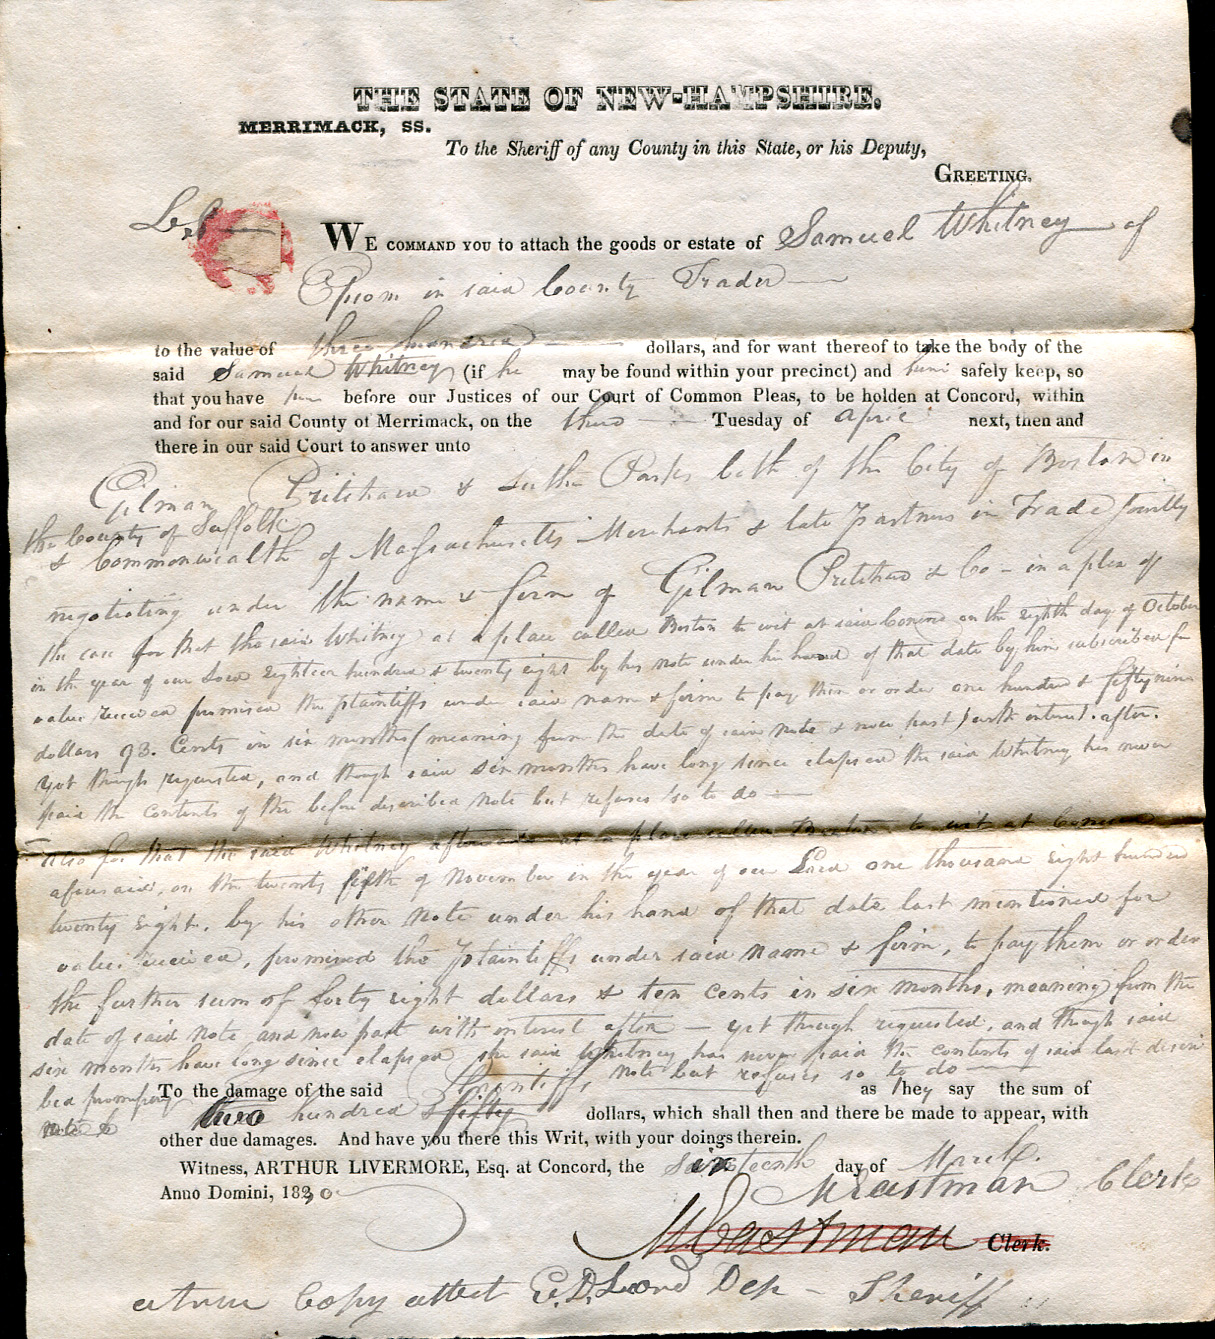 THE STATE OF NEW-HAMPSHIRE.
MERRIMACK, SS.
To the Sheriff of any County in this State, or his Deputy,
GREETING.
L.S.
WE COMMAND YOU to attach the goods or estate of Samuel Whitney of
Epsom in said County Trader
to the value of three hundred dollars, and for want thereof to take the body of the
said Samuel Whitney (if he may be found within your precinct) and him safely keep, so
that you have him before our Justices of our Court of Common Pleas, to be holden at Concord, within
and for our said County of Merrimack, on the third Tuesday of April next, then and
there in our said Court to answer unto
Gilman Pritchard & Luther Parks both of the City of Boston in
the County of Suffolk
& Commonwealth of Massachusetts Merchants & late Partners in Trade Jointly
negotiating under the name & firm of Gilman Pritchard & Co - in a plea of
the case for that the said Whitney at a place called Boston to wit at said Concord on the eighth day of October
in the year of our Lord eighteen hundred & twenty eight by his note under his hand of that date by him subscribed for
value received promised the plaintiffs under said name & firm to pay them or order one hundred & fifty nine
dollars 93. Cents in six months (meaning from the date of said note & now past) with interest after.
yet though requested, and though said six months have long since elapsed the said Whitney has never
paid the contents of the before described note but refuses so to do
Also for that the said Whitney afterwards at a place called Boston to wit at Concord
aforesaid, on the twenty fifth of November in the year of our Lord one thousand eight hundred
twenty eight, by his other note under his hand of that date last mentioned for
value received, promised the Plaintiffs under said name & firm, to pay them or order
the further sum of forty eight dollars & ten cents in six months, meaning from the
date of said note and now past with interest after — yet though requested, and though said
six months have long since elapsed the said Whitney has never paid the contents of said last descri
bed note but refuses so to do
To the damage of the said Plaintiffs as they say the sum of
two hundred & fifty dollars, which shall then and there be made to appear, with
other due damages. And have you there this Writ, with your doings therein.
Witness, ARTHUR LIVERMORE, Esq. at Concord, the sixteenth day of March.
Anno Domini, 1830
M Eastman Clerk
M Eastman Clerk.
a true Copy attest E. D. Lord Dep - Sheriff